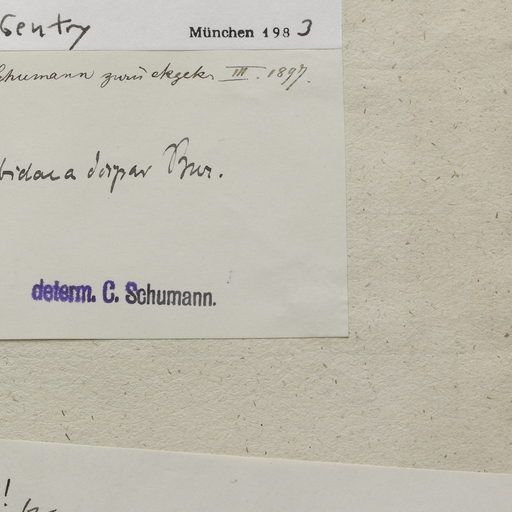 Gentry München 1983
Schumann zurückgek. III. 1897.
dispar Bur.
determ. C. Schumann.
!